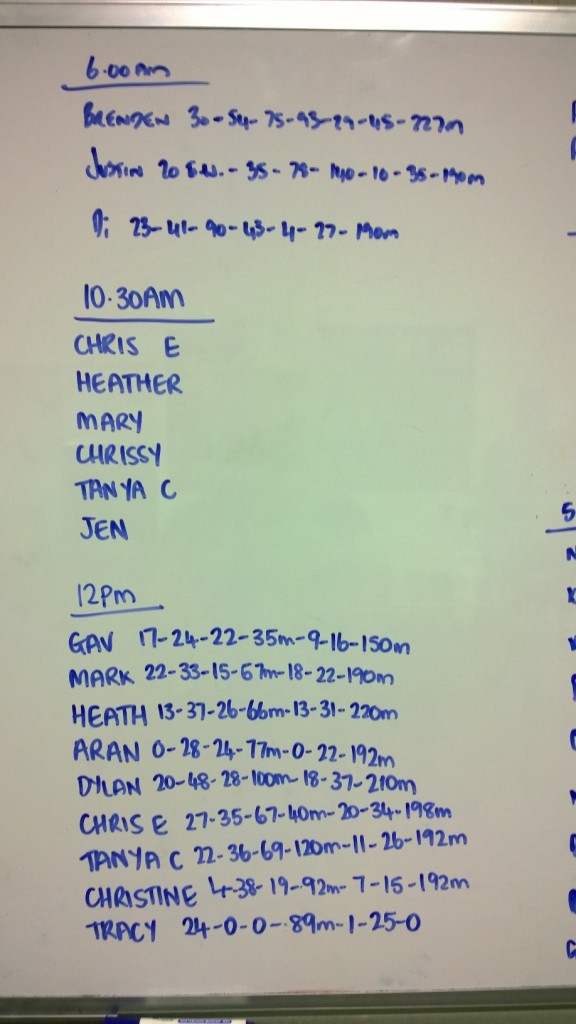 6.00am
BRENDEN 30-54-75-93-29-45-227m
JUSTIN 20 - 35 - 78- 140-10-35-190m
Di 23-41-90-43-4-27-190m
10.30AM
CHRIS E
HEATHER
MARY
CHRISSY
TANYA C
JEN
12pm
GAV 17-24-22-35m-9-16-150m
MARK 22-33-15-67m-18-22-190m
HEATH 13-37-26-66m-13-31-220m
ARAN 0-28-24-77m-0-22-192m
DYLAN 20-48-28-100m-18-37-210m
CHRIS E 27-35-67-40m-20-34-198m
TANYA C 22-36-69-120m-11-26-192m
CHRISTINE 4-38-19-92m-7-15-192m
TRACY 24-0-0-89m-1-25-0
5